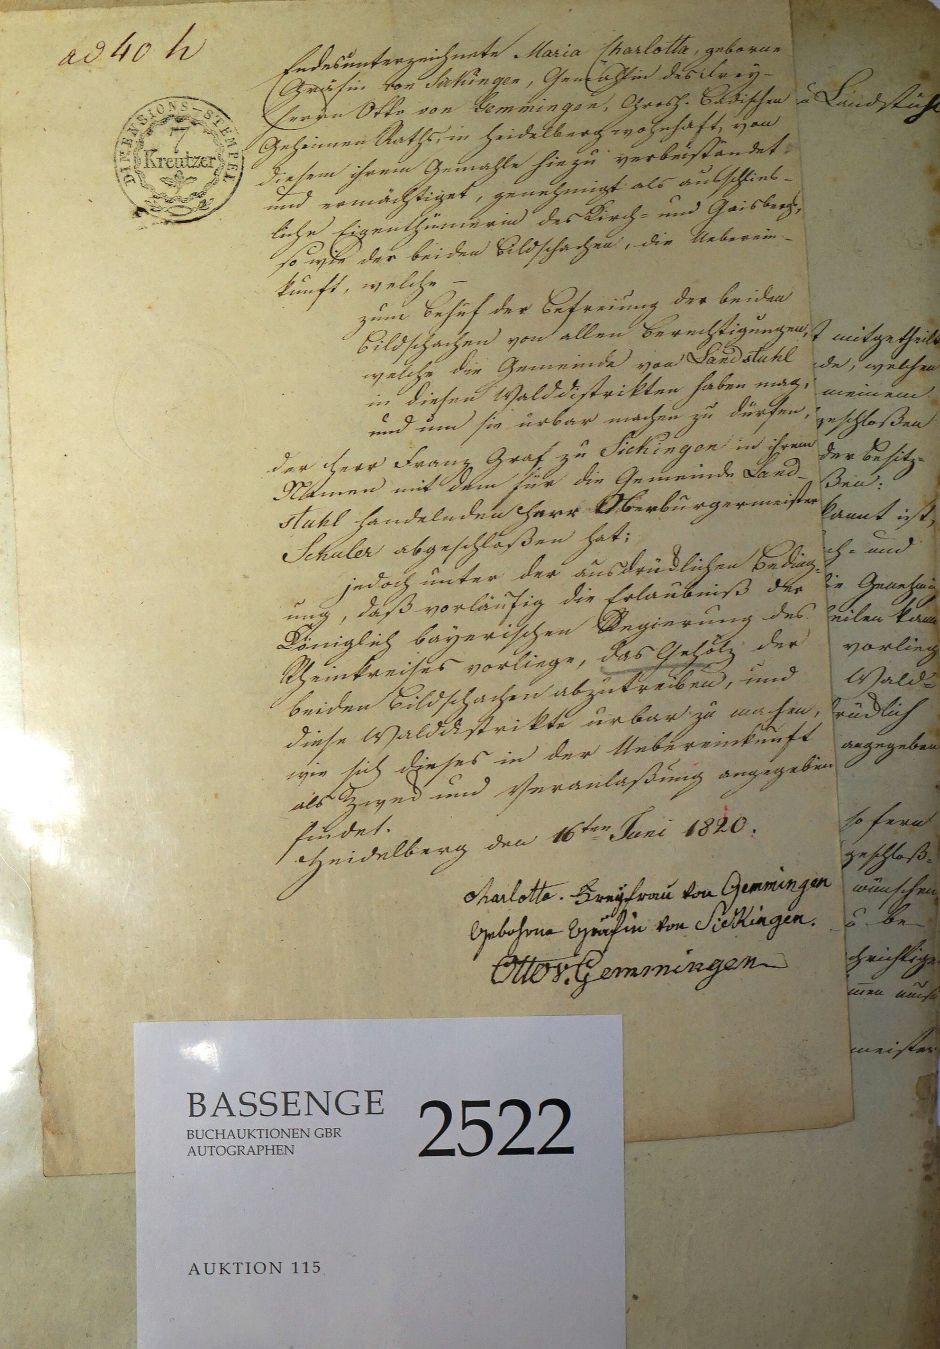 ad 40 h
DIMENSIONS-STEMPEL
7
Kreutzer
Endesunterzeichnete Maria Charlotta, geborne
Gräfin von Sickingen, Gemahlin des Frey-
herrn Otto von Gemmingen, Grosh. Badischen
Geheimen Raths, in Heidelberg wohnhaft, von
diesem ihrem Gemahle hiezu verbeistandet
und ermächtiget, genehmigt als ausschlies-
liche Eigenthümerin des Kirch- und Gaisbergs,
so wie der beiden Bildschachen, die Ueberein-
kunft, welche -
zum Behuf der Befreiung der beiden
Bildschachen von allen Berechtigungen,
welche die Gemeinde von Landstuhl
in diesen Walddistrikten haben mag,
und um sie urbar machen zu dürfen,
der Herr Franz Graf zu Sickingen in ihrem
Namen mit dem für die Gemeinde Land-
stuhl handelnden Herr Oberbürgermeister
Schuler abgeschloßen hat;
jedoch unter der ausdrücklichen Beding-
ung, daß vorläufig die Erlaubniß der
Königlich bayerischen Regierung des
Rheinkreises vorliege, das Gehölz der
beiden Bildschachen abzutreiben, und
diese Walddistrikte urbar zu machen,
wie sich dieses in der Uebereinkunft
als Zweck und Veranlaßung angegeben
findet.
Heidelberg den 16ten Juni 1820.
Charlotte Freyfrau von Gemmingen
Gebohrne Gräfin von Sickingen.
Otto v. Gemmingen
Landstuhl
mitgetheilt
de, welchen
meinem
geschloßen
der Besitz-
ßen:
kannt ist,
ch- und
die Genehmi
eilen kann
vorlieg
Wald-
rücklich
angegeben
sofern
geschloß-
wünschen
u be-
chrichtige
men auch
meister
BASSENGE
BUCHAUKTIONEN GBR
AUTOGRAPHEN
2522
AUKTION 115